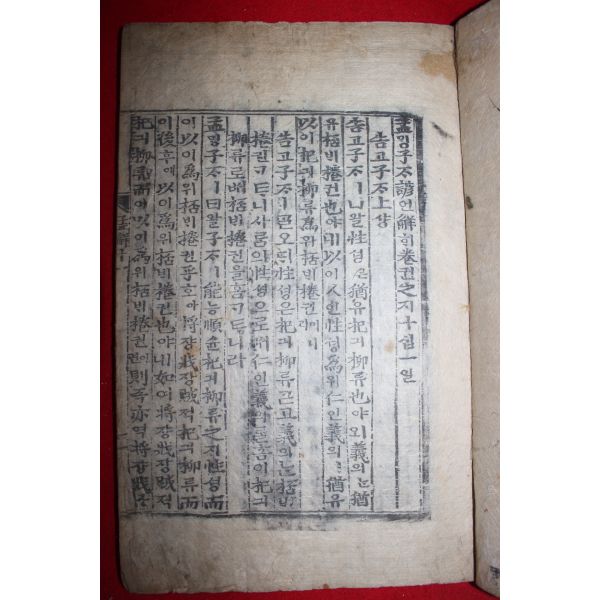 孟밍子ᄌᆞ諺언解ᄒᆡ卷권之지十십一일
告고子ᄌᆞ上샹
告고子ᄌᆞㅣ曰왈性셩은猶유杞긔柳류也야ㅣ오義의ᄂᆞᆫ猶
유桮ᄇᆡ棬권也야ㅣ니以이人인性셩爲위仁인義의ㅣ猶유
以이杞긔柳류爲위桮ᄇᆡ棬권이니
告고子ᄌᆞㅣᄀᆞᆯ오ᄃᆡ性셩은杞긔柳류ᄀᆞᆮ고義의ᄂᆞᆫ桮ᄇᆡ
棬권ᄀᆞᄐᆞ니사ᄅᆞᆷ의性셩으로ᄡᅥ仁인義의ᄅᆞᆯ홈이杞긔
柳류로ᄡᅥ桮ᄇᆡ棬권을홈ᄀᆞᄐᆞ니라
孟밍子ᄌᆞㅣ曰왈子ᄌᆞㅣ能능順슌杞긔柳류之지性셩而
이以이爲위桮ᄇᆡ棬권乎호아將쟝戕쟝賊적杞긔柳류而
이後후에以이爲위桮ᄇᆡ棬권也야ㅣ니如여將쟝戕쟝賊적
杞긔柳류而이以이爲위桮ᄇᆡ棬권이면則즉亦역將쟝戕쟝
孟解十一